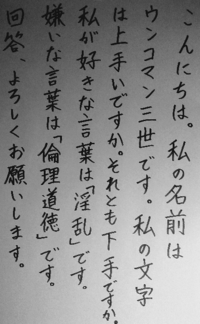 こんにちは。私の名前は
ウンコマン三世です。私の文字
は上手いですか。それとも下手ですか。
私が好きな言葉は「淫乱」です。
嫌いな言葉は「倫理道徳」です。
回答、よろしくお願いします。